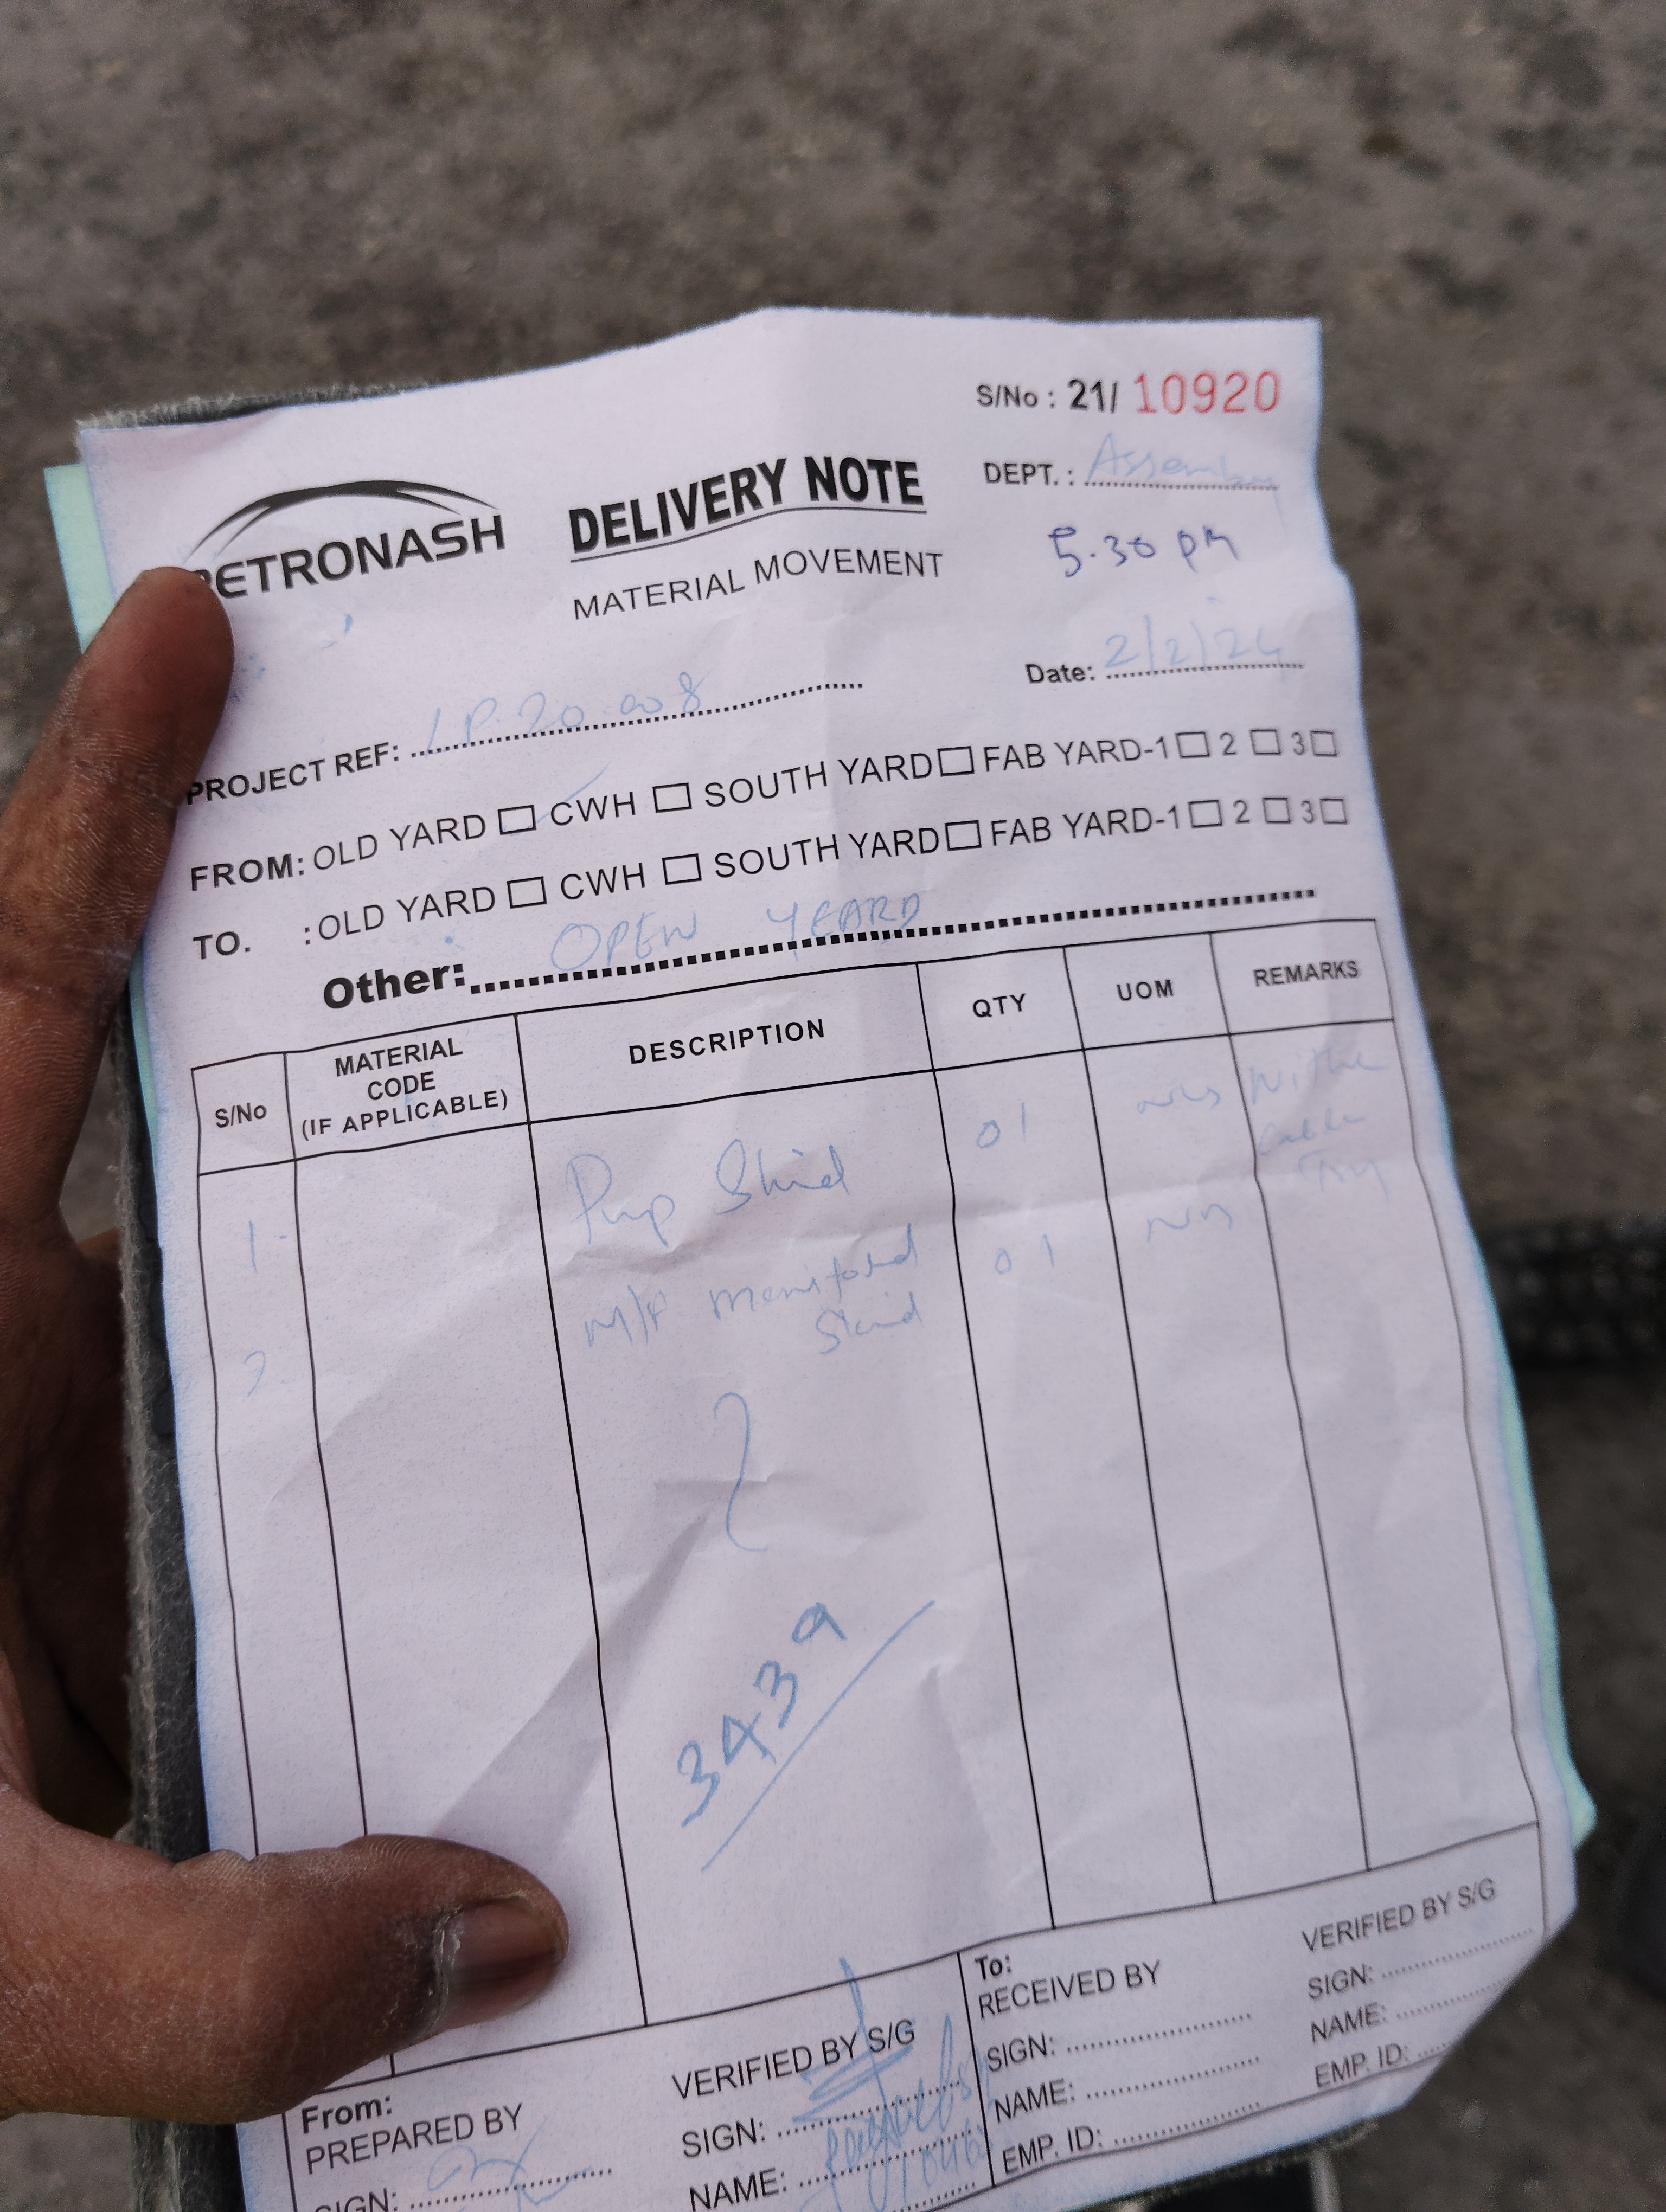 S/No : 21/ 10920
PETRONASH
DELIVERY NOTE
DEPT. : Assembly
MATERIAL MOVEMENT
5.30 pm
Date: 2/2/24
PROJECT REF: 1P.20.008
FROM: OLD YARD CWH SOUTH YARD FAB YARD-1 2 3
TO. : OLD YARD CWH SOUTH YARD FAB YARD-1 2 3
Other: OPEN YEARD
S/No MATERIAL CODE (IF APPLICABLE) DESCRIPTION QTY UOM REMARKS
1. Pump Skid 01 nos
2. M/P Manifold Skid 01 nos
3439
From:
PREPARED BY
SIGN:
VERIFIED BY S/G
SIGN:
NAME:
To:
RECEIVED BY
SIGN:
NAME:
EMP. ID:
VERIFIED BY S/G
SIGN:
NAME:
EMP. ID: